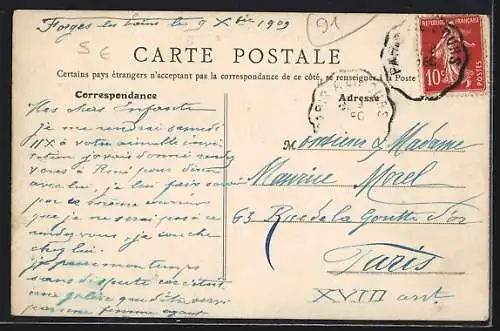 Forges les bains le 9 Xbre 1909
91
CARTE POSTALE
Certains pays étrangers n'acceptant pas la correspondance de ce côté, se renseigner à la Poste
Correspondance
Mes chers Enfants
je me rendrai samedi
11 à votre aimable invi
tation j'avais donné rendez
vous à René pour dîner
avec lui, je lui fais savoir
par ce même courrier
que je ne serai pas à ce
rendez-vous, je couche
chez lui.
je passe mon temps
sans dispute car c'était
une galère que d'être
par une femme ayant
Adresse
Monsieur & Madame
Maurice Morel
63 Rue de la Goutte d'or
Paris
XVIII arrt
RÉPUBLIQUE FRANÇAISE
10c
POSTES